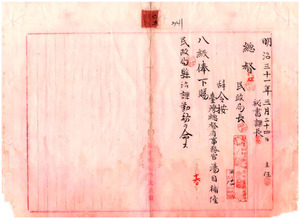 明治三十一年三月二十四日
秘書課長
主任
總督
民政局長
辞令按
臺灣總督府事務官湯目補隆
八級俸下賜
民政局縣治課勤務ヲ命ス